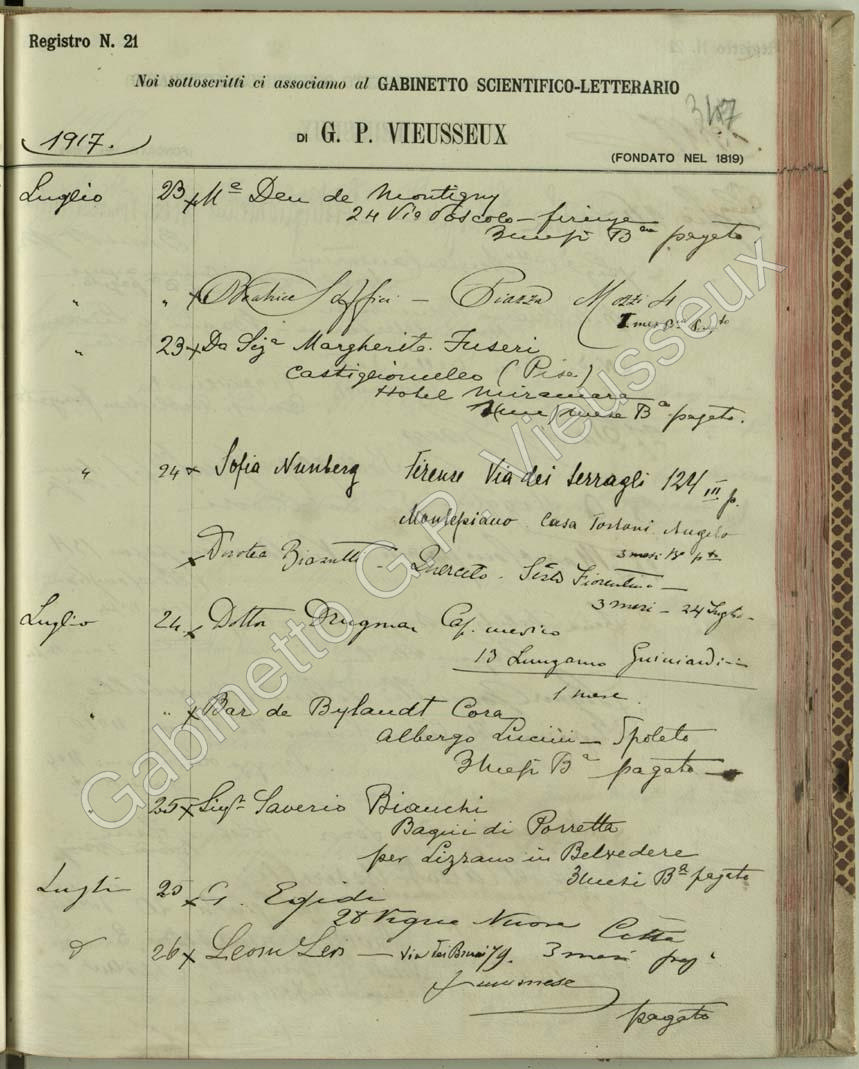 Registro N. 21
Noi sottoscritti ci associamo al GABINETTO SCIENTIFICO-LETTERARIO
347
DI G. P. VIEUSSEUX
1917.
(FONDATO NEL 1819)
Luglio 23 x Me Deu de Montigny
24 Via Foscolo - firenze
3 mesi Ba pagato.
" " x Beatrice Soffici - Piazza Mozzi 4
" 23 x Da Siga Margherita Fuseri
Castiglioncello (Pisa)
Hotel Miramara
mese Ba pagato.
" 24 x Sofia Nunberg Firenze Via dei Serragli 124 III p.
Montepiano Casa Angelo
3 mesi
x Dorotea - Querceto - Sesto Fiorentino -
3 mesi - 24 Luglio -
Luglio 24 x Dottor Drugman Cap. medico
13 Lungarno Guicciardini
1 mese.
" " x Bar de Bylandt Cora
Albergo Lucini - Spoleto
3 mesi Ba pagato -
" 25 x Sigr Saverio Bianchi
Bagni di Porretta
per Lizzano in Belvedere
3 mesi Ba pagato
Luglio 25 x G. Egidi
28 Vigna Nuova Città
26 x Leoni - Via 3 mesi
un mese
pagato
Gabinetto G.P. Vieusseux